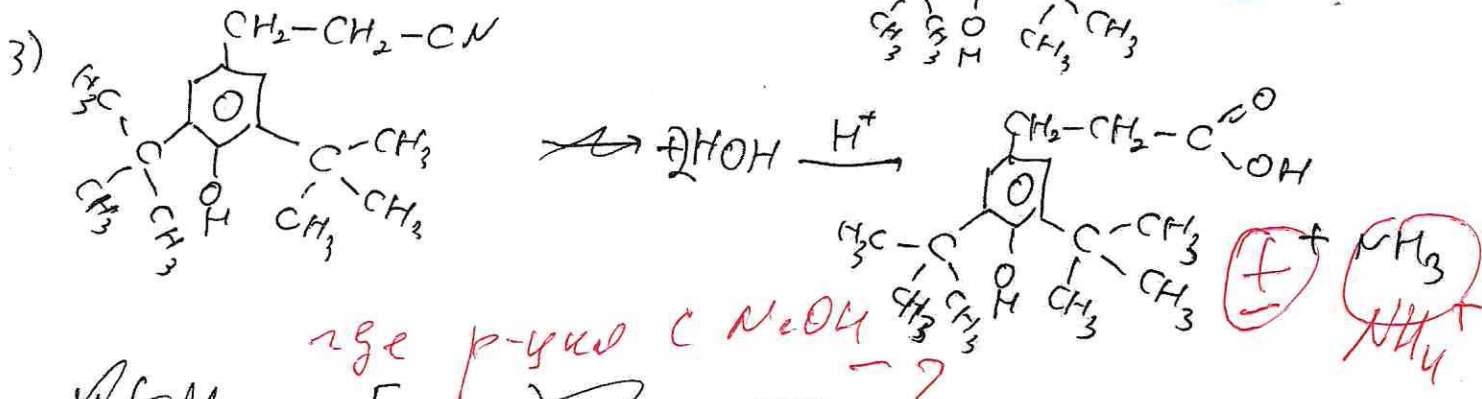 CH₃ CH₃ O H CH₃ CH₃
3) CH₂-CH₂-CN
H₃C C CH₃ CH₃ O H C CH₃ CH₃ CH₃
+2HOH H⁺
CH₂-CH₂-C O OH
H₃C-C CH₃ CH₃ O H C-CH₃ CH₃ CH₃
± + NH₃
NH₄⁺
где р-ция с NaOH - ?